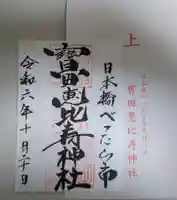 上
日本橋べったら市
寳田恵比寿神社
令和六年十月二十日
寳田恵比寿神社